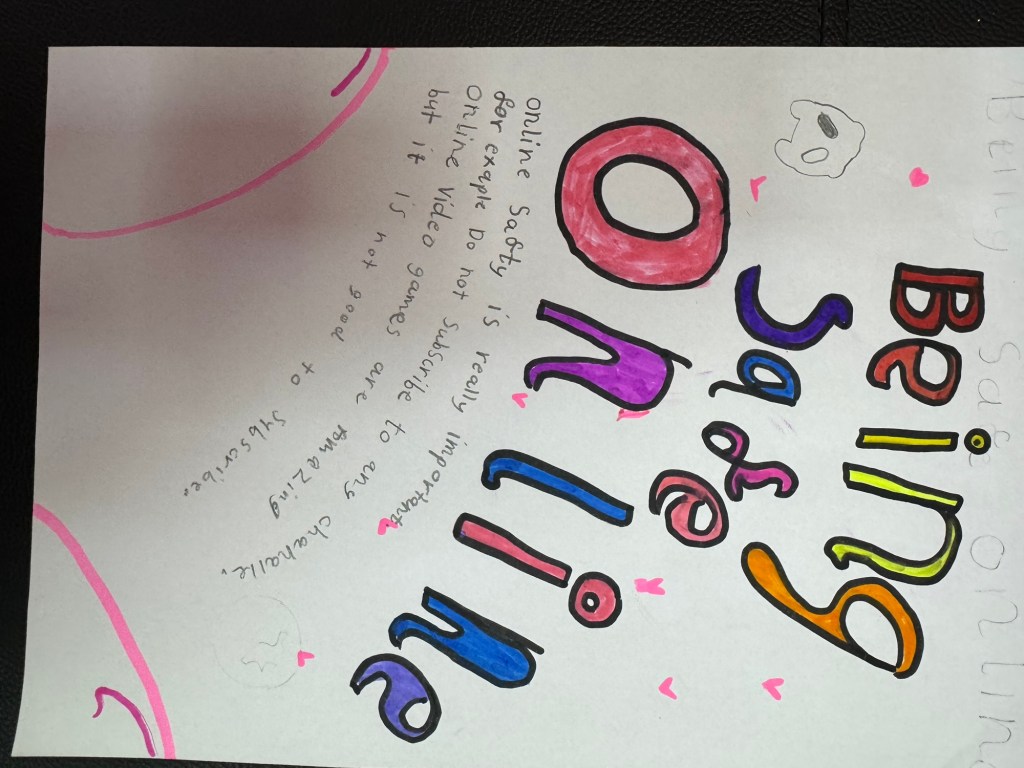 Being Safe onLin
Being
Safe
Online
online Safty is really important
for exaple Do not subscribe to any chanalle.
Online Video games are amazing
but it is not good to sybscribe.